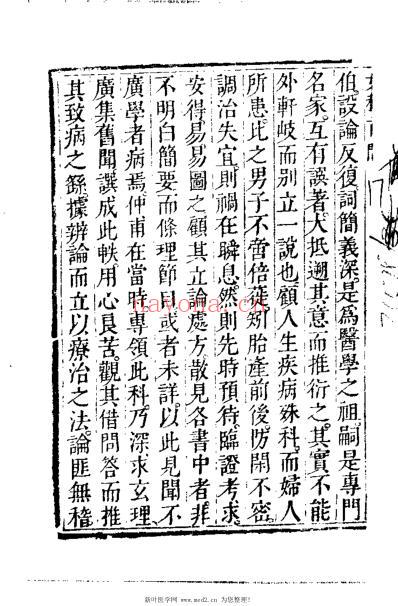 伯。設論反復。詞簡義深。是爲醫學之祖。嗣是專門
名家。互有誤著。大抵遡其意而推衍之。其實不能
外軒岐而別立一說也。顧人生疾病殊科。而婦人
所患比之男子不啻倍蓰。矧胎產前後。防閑不密。
調治失宜。則禍在瞬息。然則先時預待。臨證考求。
安得易易圖之。顧其立論處方。散見各書中者。非
不明白簡要。而條理節目。或者未詳。以此見聞不
廣。學者病焉。仲甫在當時專領此科。乃深求玄理。
廣集舊聞。譔成此帙。用心良苦。觀其借問答而推
其致病之繇。據辨論而立以療治之法。論匪無稽
hayona.cn
新叶医学网 www.med2.cn 为您整理!